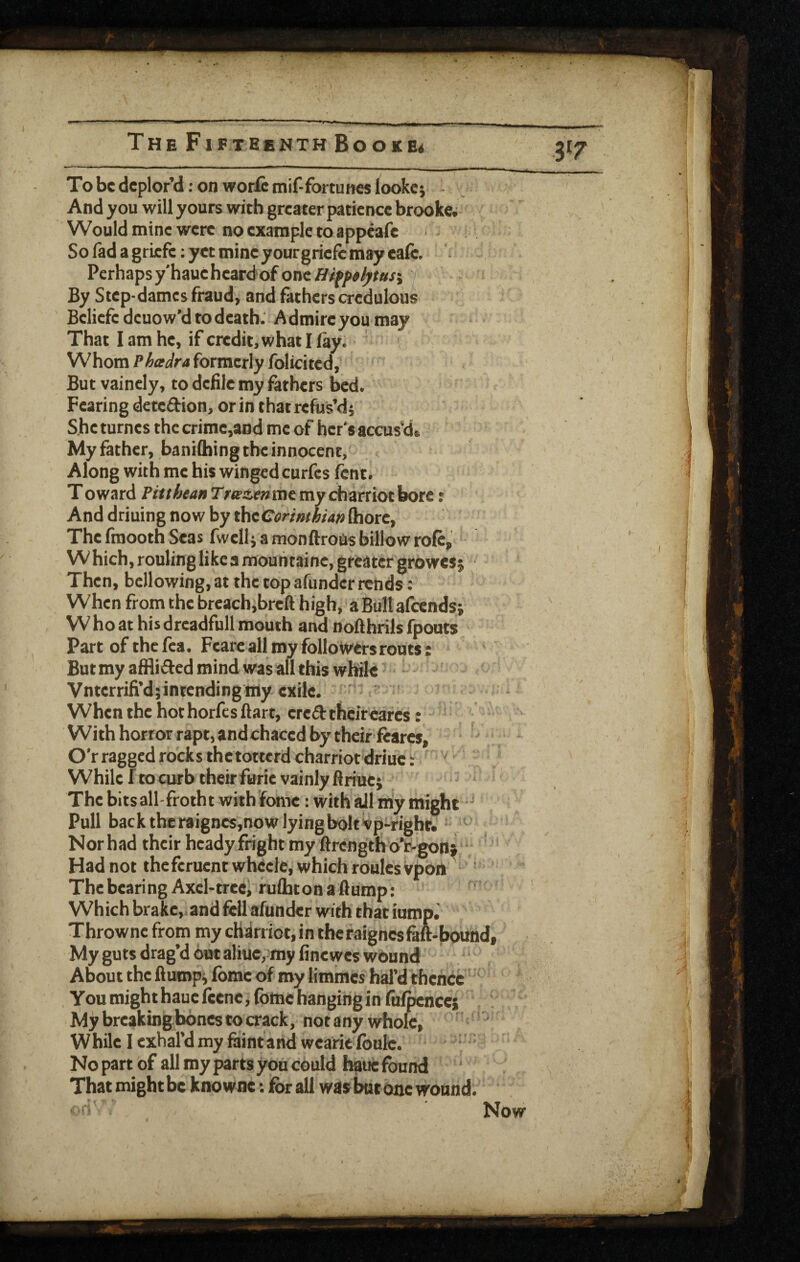 THE FIFTEENTH BOOKE. 317
To be deplor'd: on worſe miſ-fortunes looke;
And you will yours with greater patience brooke.
Would mine were no example to appeaſe
So ſad a griefe: yet mine your griefe may eaſe.
Perhaps y'haue heard of one Hippolytus;
By Step-dames fraud, and fathers credulous
Beliefe deuow'd to death. Admire you may
That I am he, if credit, what I ſay.
Whom Phædra formerly ſolicited,
But vainely, to defile my fathers bed.
Fearing detection, or in that refus'd;
She turnes the crime, and me of her's accus'd.
My father, baniſhing the innocent,
Along with me his winged curſes ſent.
Toward Pitthean Trœzen me my charriot bore:
And driuing now by the Corinthian ſhore,
The ſmooth Seas ſwell; a monſtrous billow roſe,
Which, rouling like a mountaine, greater growes;
Then, bellowing, at the top aſunder rends:
When from the breach, breſt high, a Bull aſcends;
Who at his dreadfull mouth and noſthrils ſpouts
Part of the ſea. Feare all my followers routs:
But my afflicted mind was all this while
Vnterrifi'd; intending my exile.
When the hot horſes ſtart, erect their eares:
With horror rapt, and chaced by their feares,
O'r ragged rocks the totterd charriot driue:
While I to curb their furie vainly ſtriue;
The bits all-frotht with fome: with all my might
Pull back the raignes, now lying bolt vp-right.
Nor had their heady fright my ſtrength o'r-gon;
Had not the feruent wheele, which roules vpon
The bearing Axel-tree, ruſht on a ſtump:
Which brake, and fell aſunder with that iump.
Throwne from my charriot, in the raignes faſt-bound,
My guts drag'd out aliue, my ſinewes wound
About the ſtump, ſome of my limmes hal'd thence
You might haue ſeene, ſome hanging in ſuſpence;
My breaking bones to crack, not any whole,
While I exhal'd my faint and wearie ſoule.
No part of all my parts you could haue found
That might be knowne: for all was but one wound.
Now